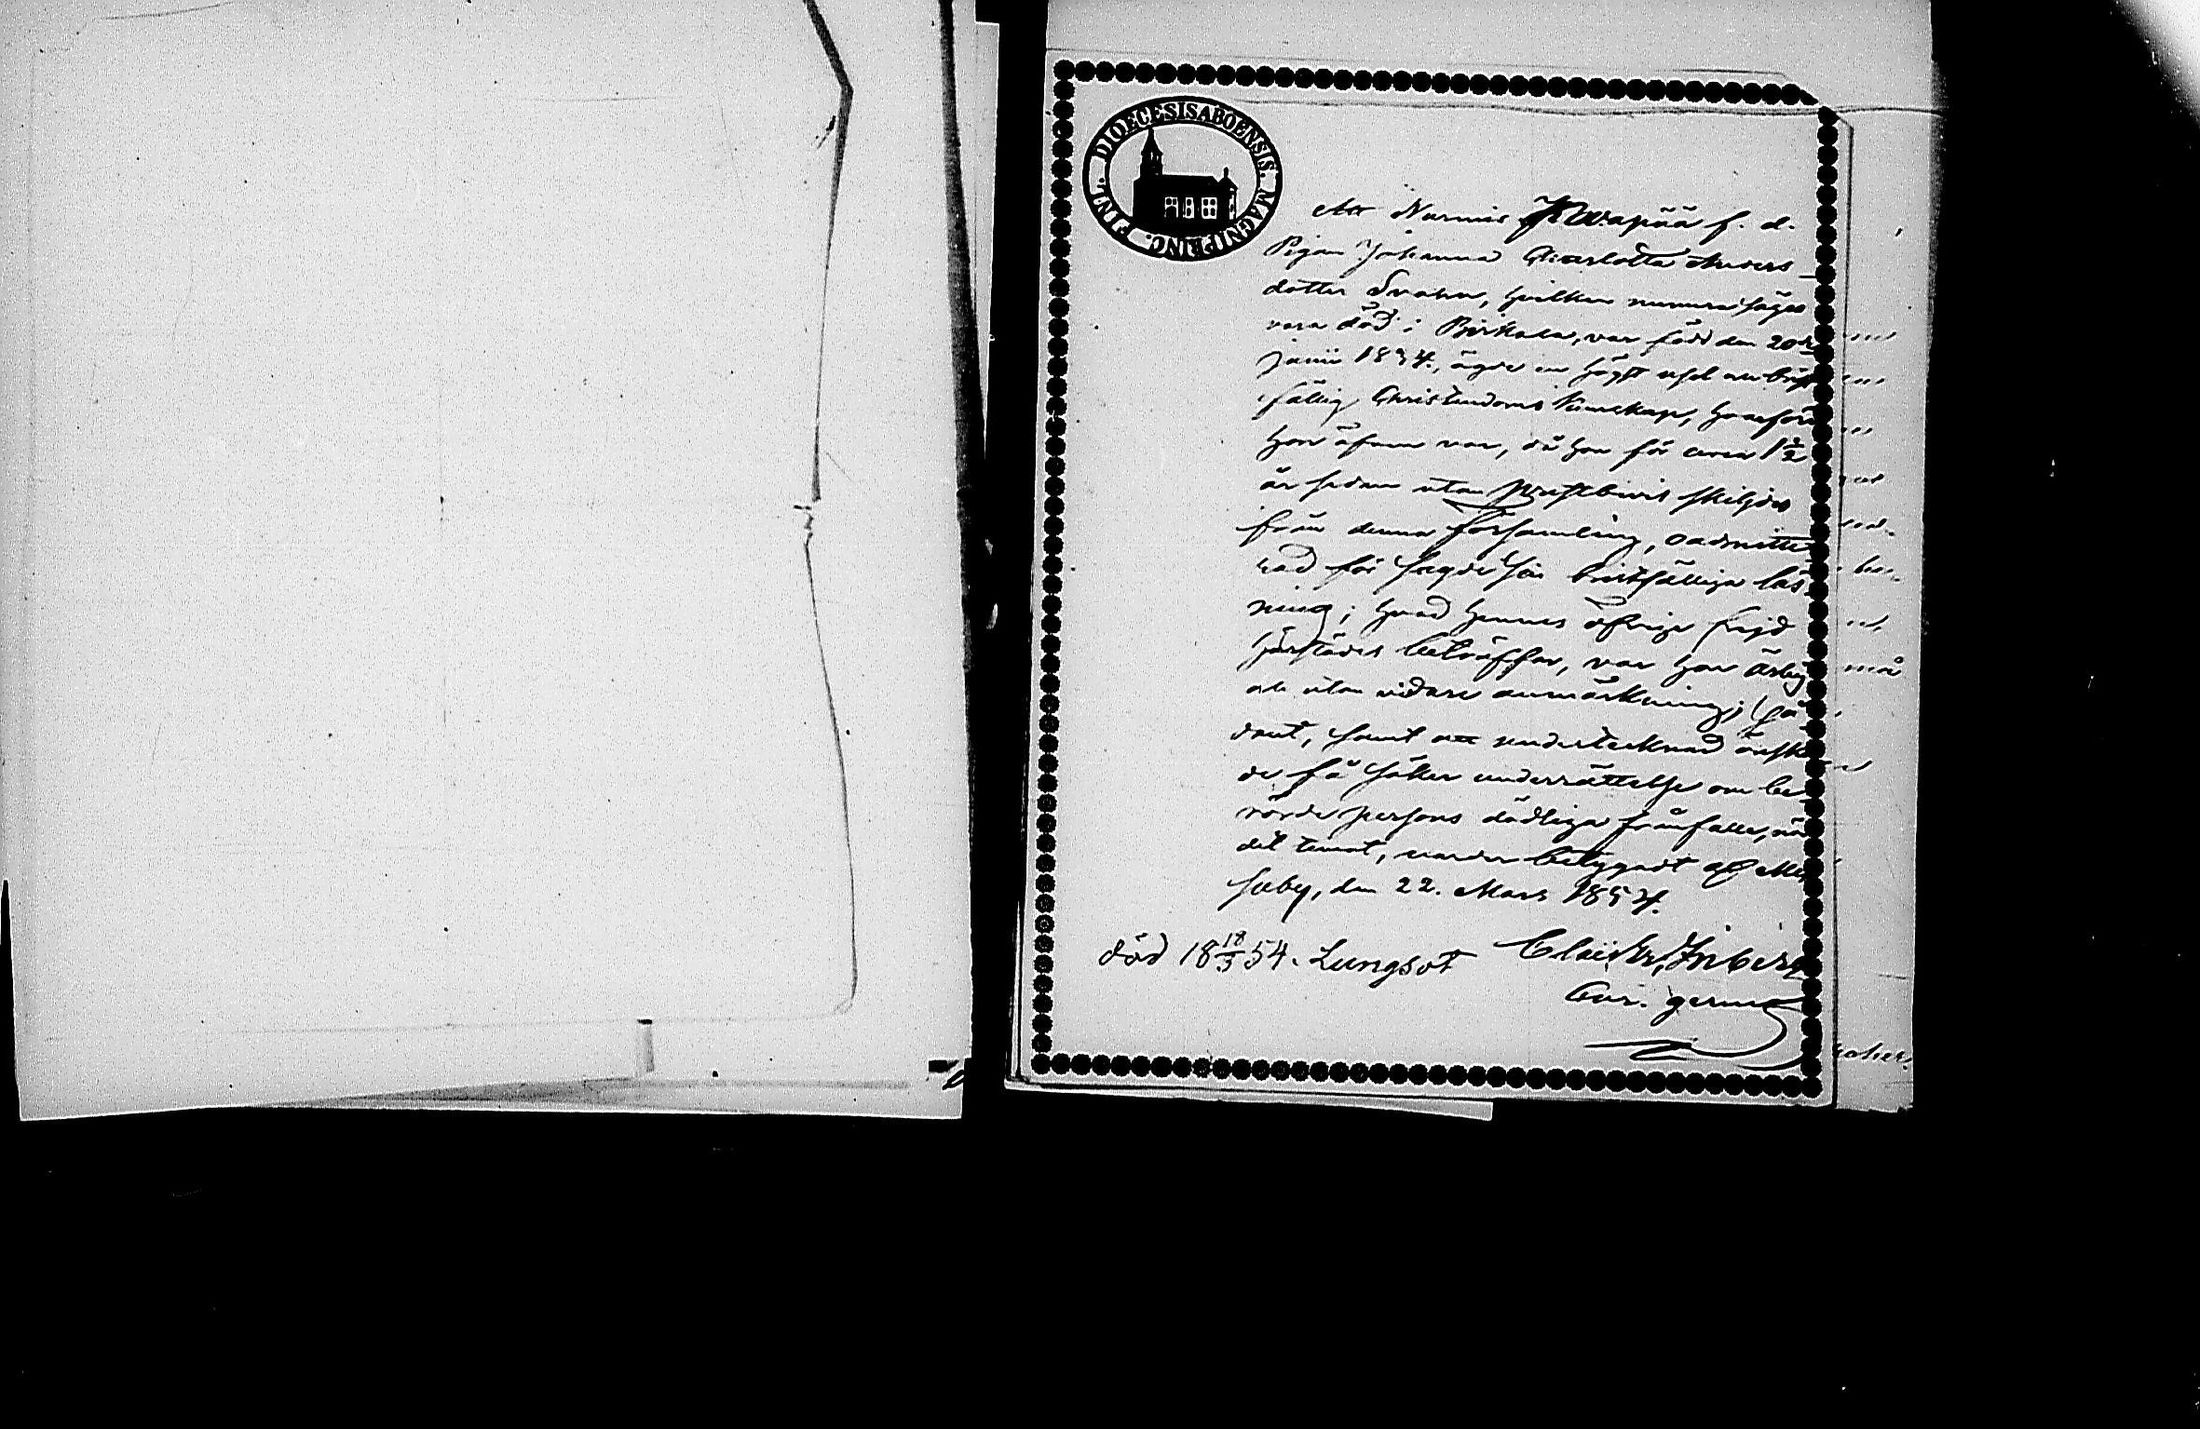 DIOECESIS ABOENSIS. MAGNI PRINC. FINL.
Att Nurmis Kiwapää f. d.
Pigan Johanna Charlotta Anders-
dotter Svahn, hvilken numera säges
vara död i Birkala, var född den 20de
Junii 1834, ägde en högst usel och brist-
fällig Christendoms kunskap, hvarföre
hon äfven var, då hon för circa 1½
år sedan utan prestbevis skiljdes
från denna församling, oadmitte-
rad för sagde sin bristfälliga läs-
ning; hvad hennes öfriga frejd
härstädes beträffar, var hon ärlig
och utan vidare anmärkning; så-
dant, samt att undertecknad önska-
de få säker underrättelse om be-
rörde persons dödliga frånfälle, när
det timat, varder betygadt af
suby, den 22. Mars 1854.
död 18 18/3 54. Lungsot